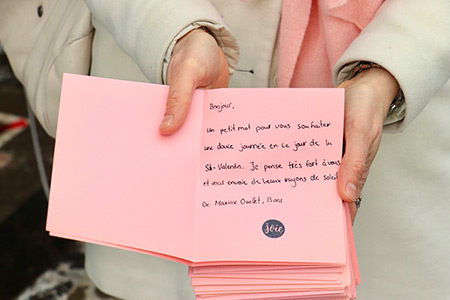 Bonjour,
Un petit mot pour vous souhaiter
une douce journée en ce jour de la
St-Valentin. Je pense très fort à vous
et vous envoie de beaux rayons de soleil
De Maxine Ouellet,
joie